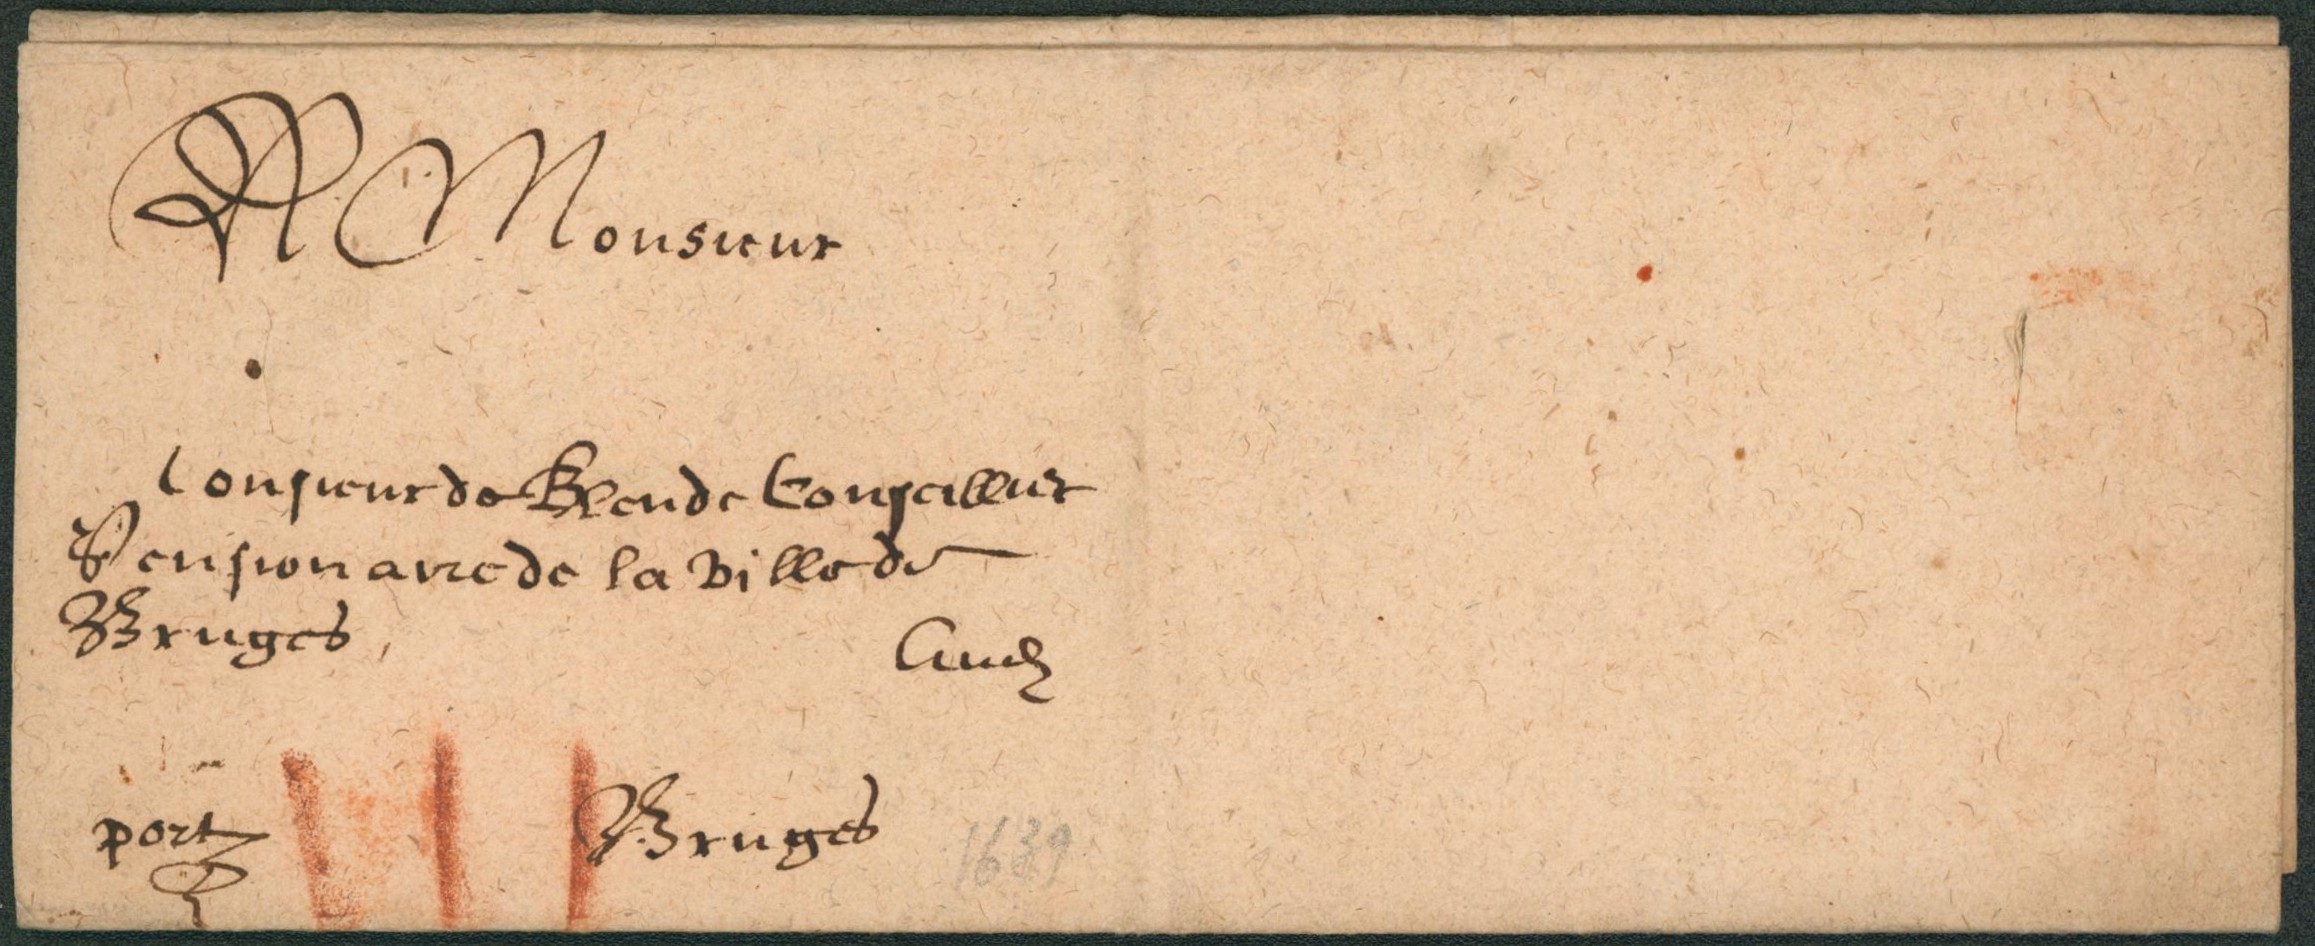 A Monsieur
Monsieur de Blende Conseillier
Pensionaire de la ville de
Bruges,
port
Bruges
1639